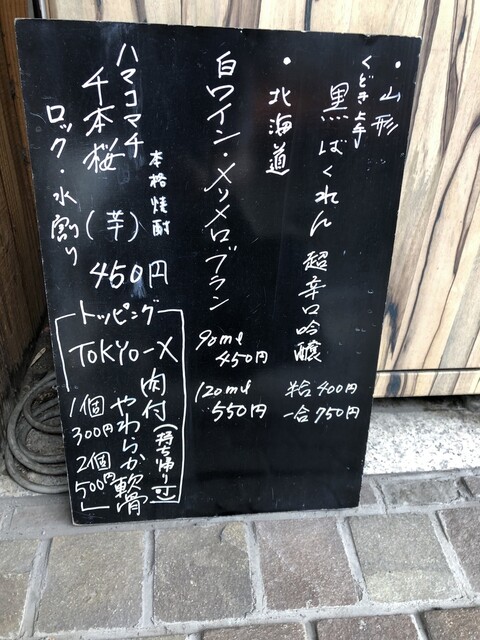 ・山形
くどき上手
黒ばくれん 超辛口吟醸
半合 400円
一合 750円
・北海道
白ワイン・メリメロブラン
90ml
450円
120ml
550円
ハマコマチ
本格焼酎
千本桜 (芋) 450円
ロック・水割り
トッピング
TOKYO-X
肉付
やわらか軟骨
(持ち帰り可)
1個
300円
2個
500円